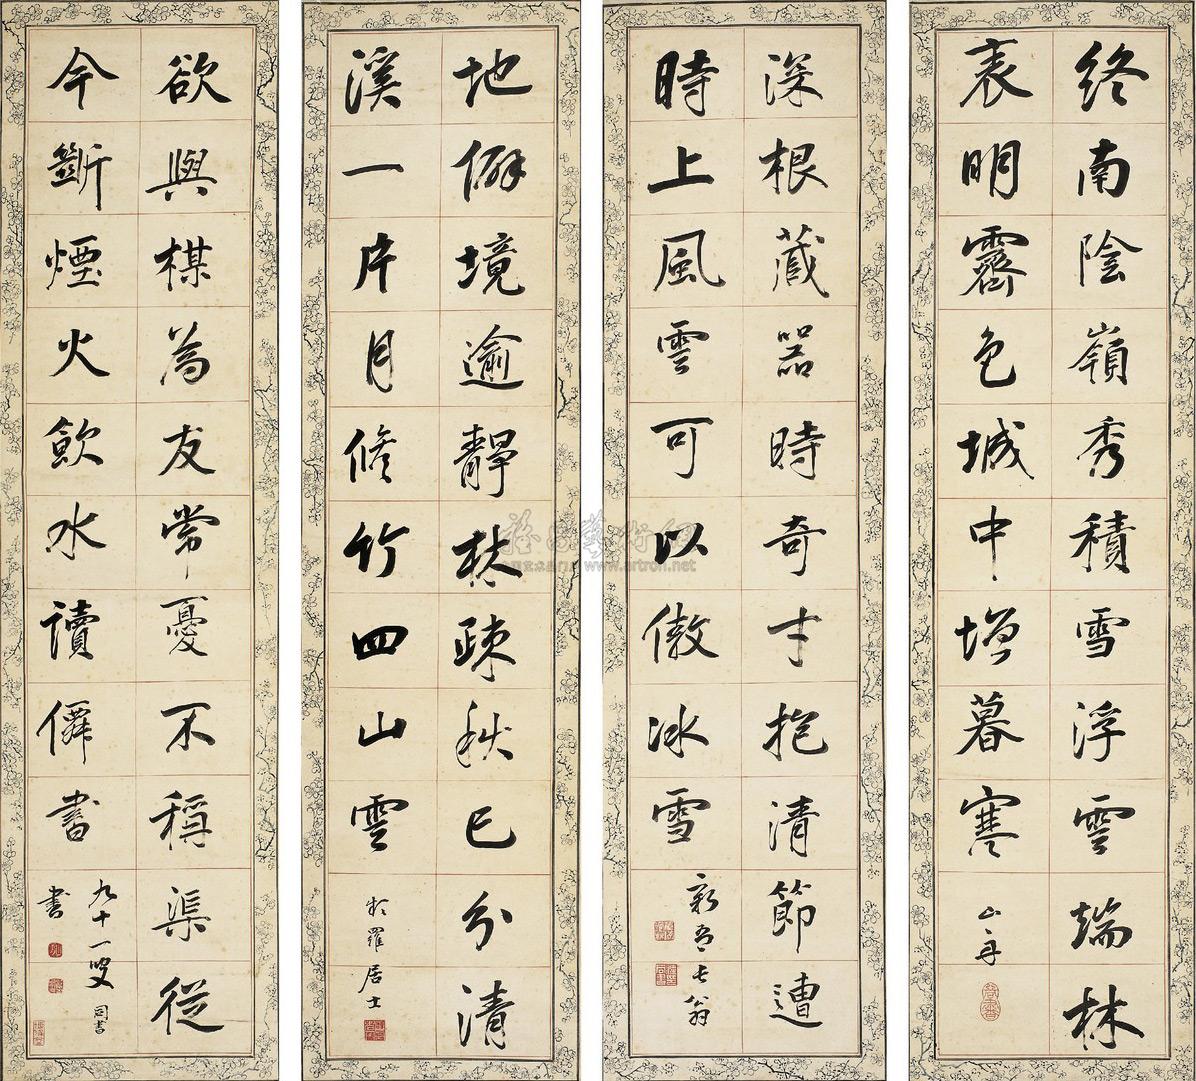 終南陰嶺秀積雪浮雲端林
表明霽色城中增暮寒
山舟
深根藏器時奇才抱清節遭
時上風雲可以傲冰雪
新吾長翁
地僻境逾靜林疎秋已分清
溪一片月修竹四山雲
於羅居士
欲與梅為友常憂不稱渠從
今斷煙火飲水讀僊書
九十一叟同書
書
www.artron.net